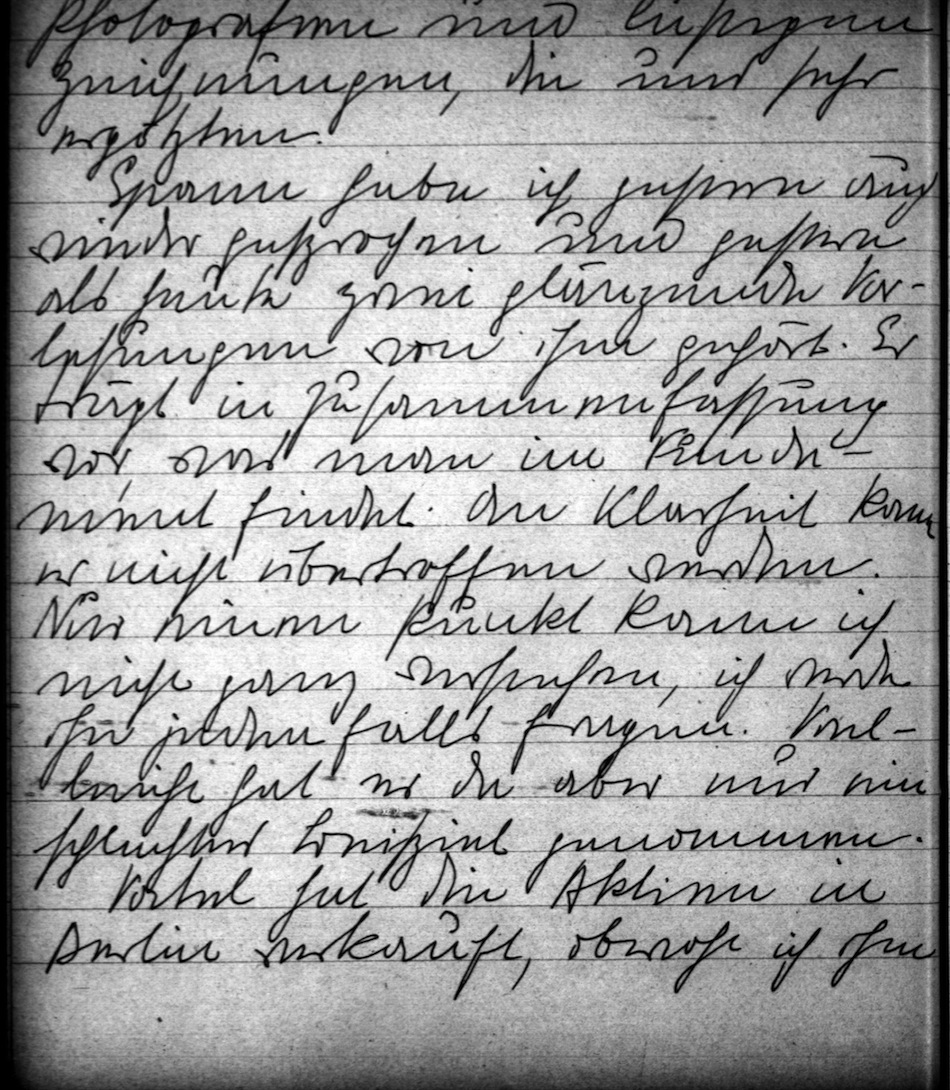 Photografien und lustigen
Zeichnungen, die uns sehr
ergötzten.
Spann habe ich gestern auch
wieder gesprochen und gestern
als heute zwei glänzende Vor-
lesungen von ihm gehört. Er
trägt in Zusammenfassung
vor, was man im Funda-
ment findet. An Klarheit kann
er nicht übertroffen werden.
Nur einen Punkt kann ich
nicht ganz verstehen, ich werde
ihn jedenfalls fragen. Viel-
leicht hat er da aber nur ein
schlechtes Beispiel genommen.
Vatel hat die Aktien in
Berlin verkauft, obwohl ich ihm